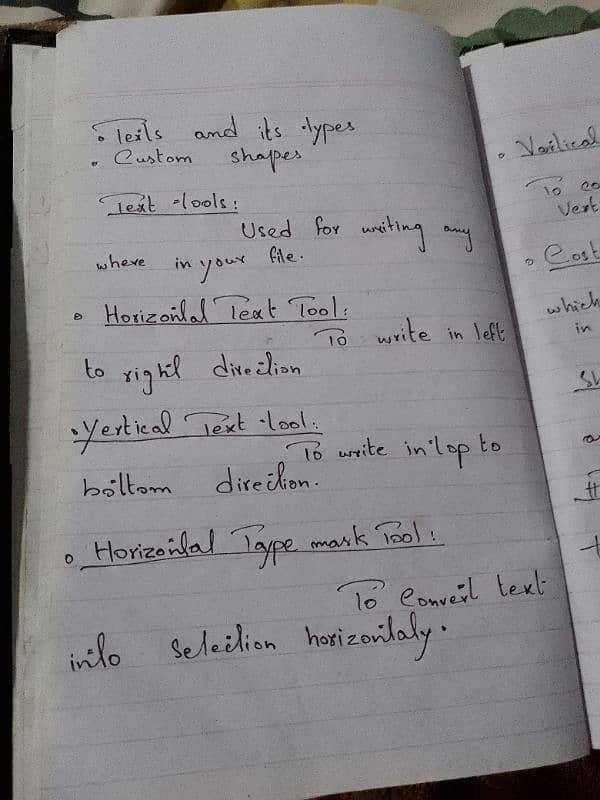 • Texts and its types
• Custom shapes
Text tools:
Used for writing any
where in your file.
• Horizontal Text Tool:
To write in left
to right direction
• Vertical Text tool:
To write in top to
bottom direction.
• Horizontal Type mask Tool:
To convert text
into selection horizontaly.
• Vertical
To co
Vert
• Cost
which
in